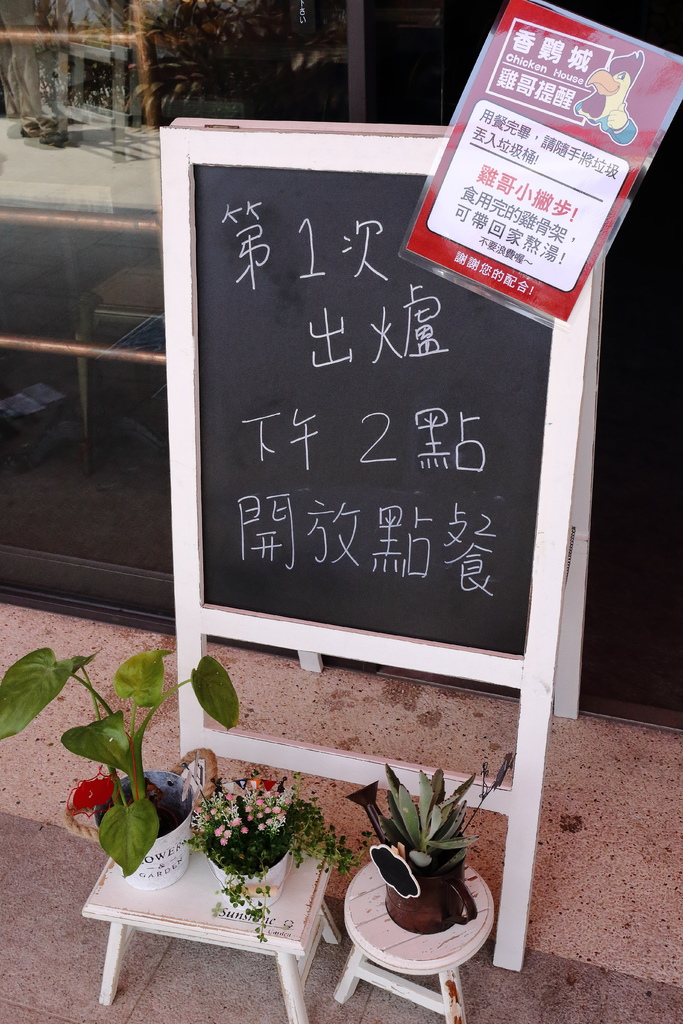 下さい
香鷄城
Chicken House
雞哥提醒
用餐完畢，請隨手將垃圾
丟入垃圾桶!
雞哥小撇步!
食用完的雞骨架，
可帶回家熬湯!
不要浪費喔～
謝謝您的配合!
第1次
出火爐
下午2點
開放點餐
OWER
&
GARDEN
Sunshine
Garden